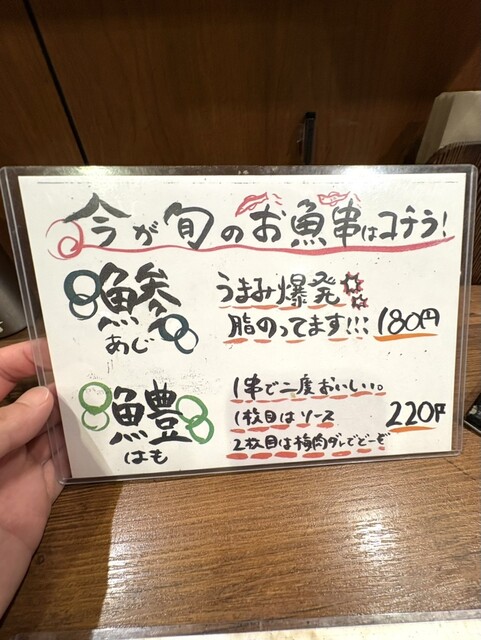 今が旬のお魚串はコチラ!
鯵
あじ
うまみ爆発
脂のってます!!! 180円
鱧
はも
1串で二度おいしい。
1枚目はソース
2枚目は梅肉ダレでどーぞ
220円